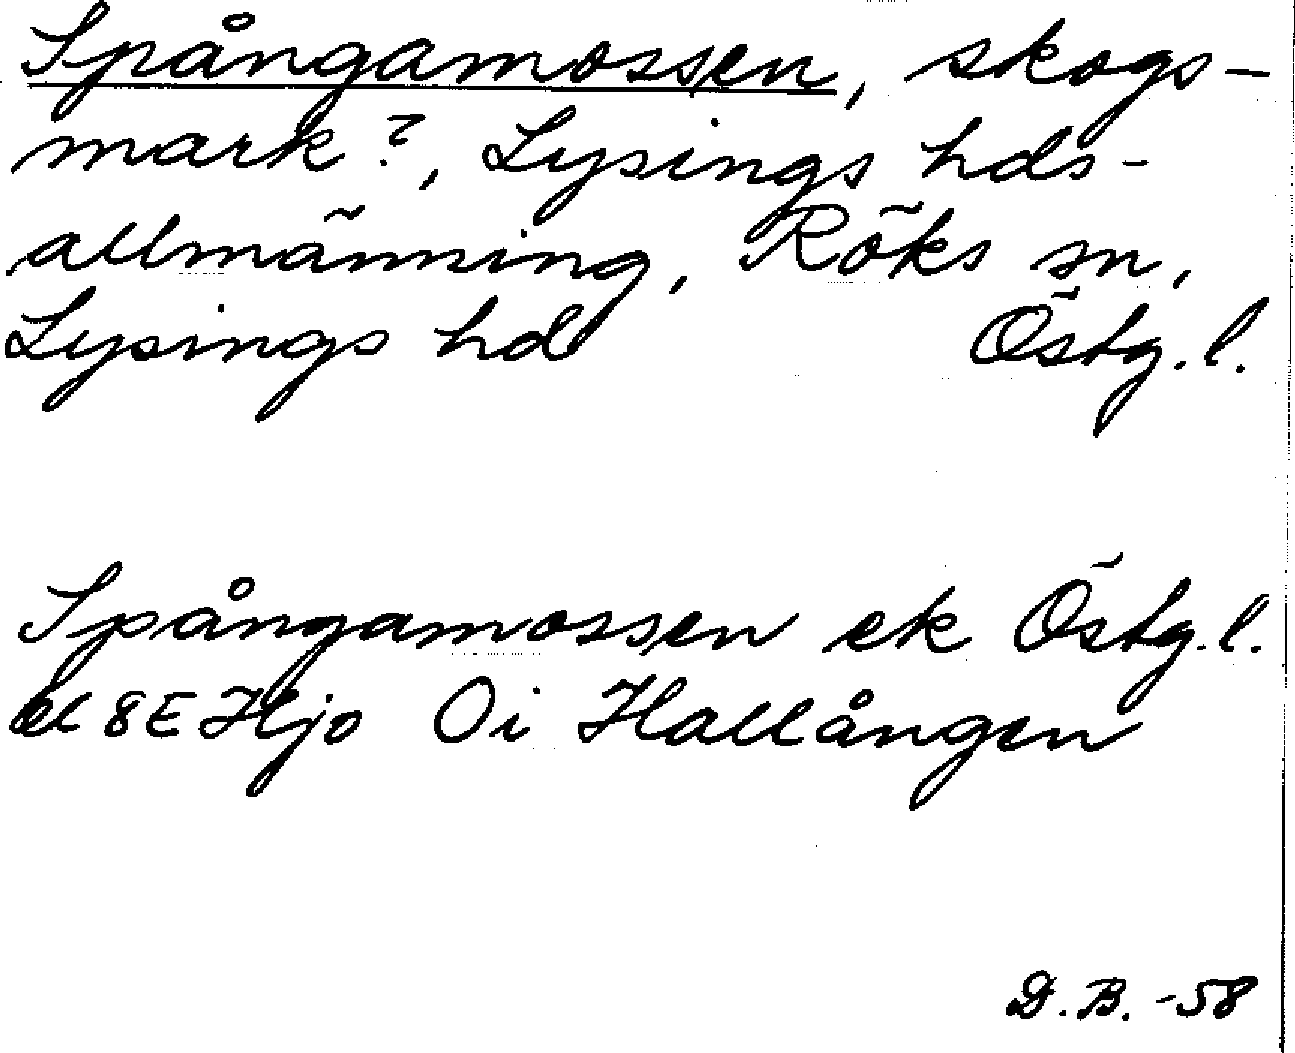 Spångamossen, skogs-
mark?, Lysings hds-
allmänning, Röks sn,
Lysings hd Östg.l.
Spångamossen ek Östg.l.
bl 8E Hjo 0i Hallången
D.B. -58